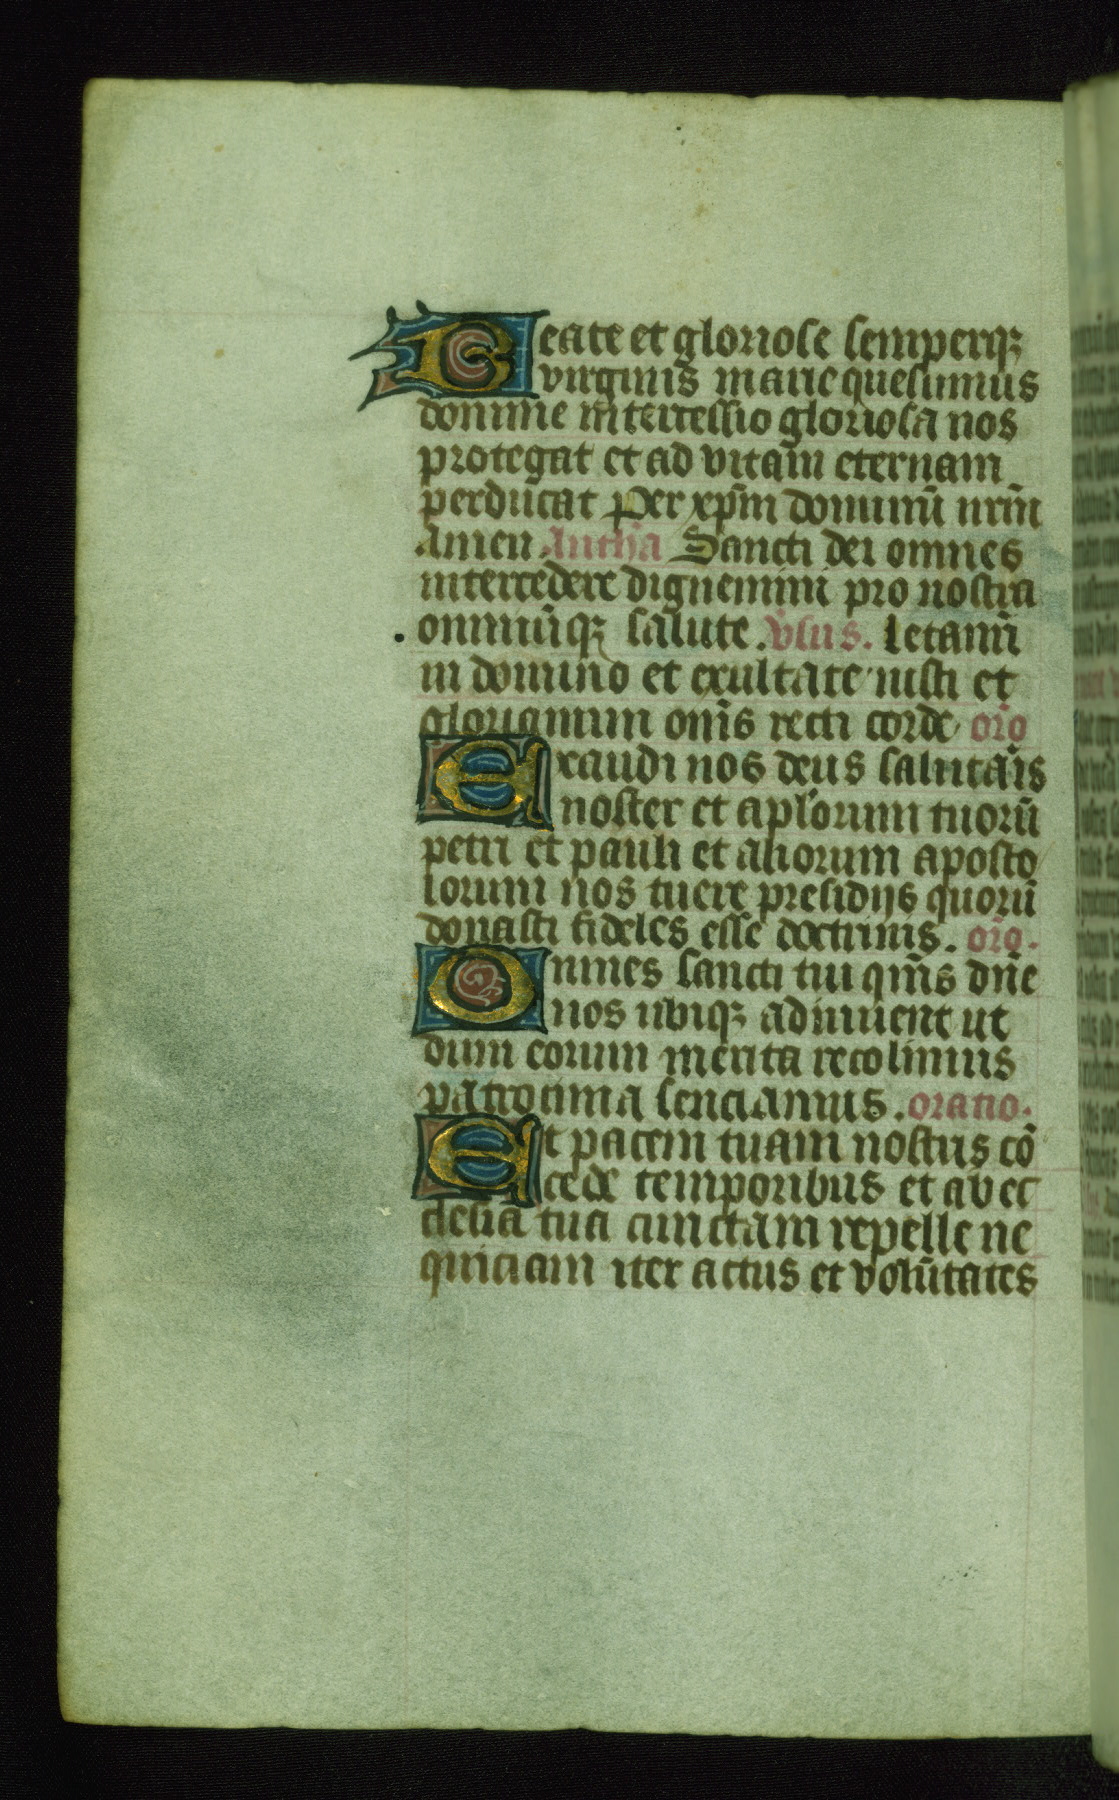 Beate et gloriose semperqꝫ
virginis marie quesumus
domine intercessio gloriosa nos
protegat et ad vitam eternam
perducat Per xp̄m dominū nrm̄
Amen. Antih̄a Sancti dei omnes
intercedere dignemini pro nostra
omniūqꝫ salute. v̄sus. Letamī
in domino et exultate iusti et
gloriamini om̄s recti corde or̄o
Exaudi nos deus salutar̄is
noster et apl̄orum tuorū
petri et pauli et aliorum aposto
lorum nos tuere presidijs quorū
donasti fideles esse doctrinis. or̄o.
Omnes sancti tui qm̄s dn̄e
nos ubiqꝫ adiuuent ut
dum eorum merita recolimus
patrocinia senciamus. oratio.
Et pacem tuam nostris cō
cede temporibus et ab ec
clesia tua cunctam repelle ne
quiciam iter actus et volūtates